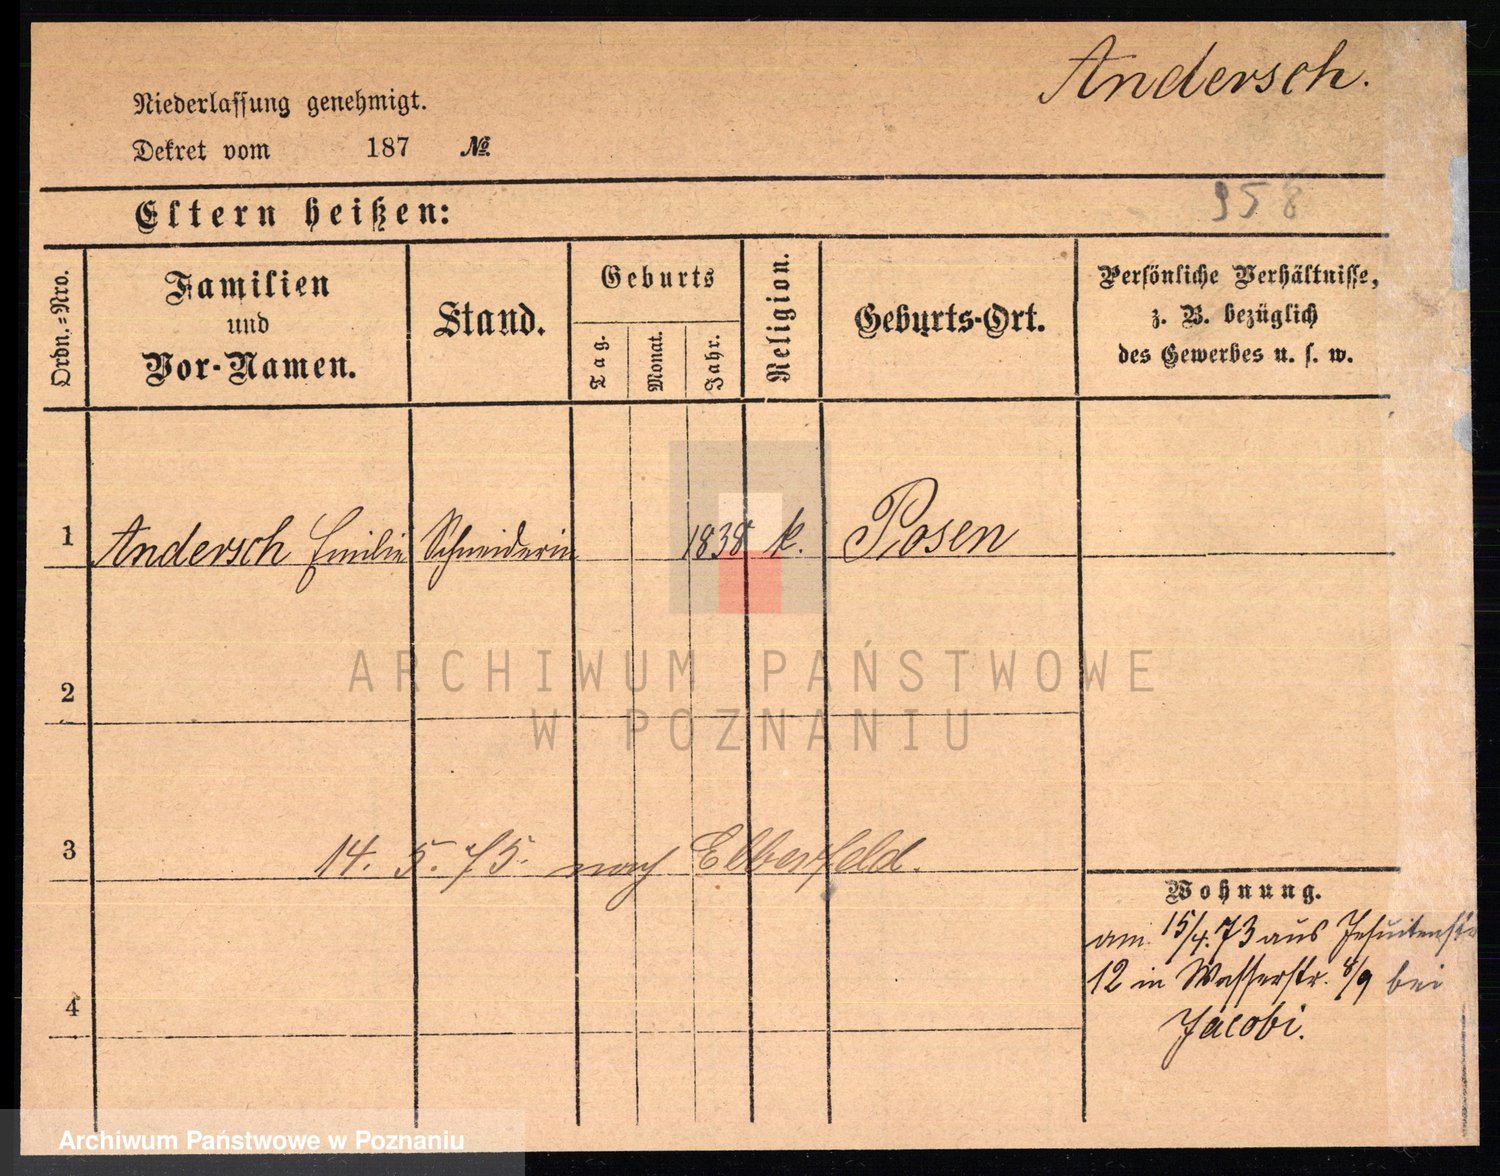 Andersch.
Niederlassung genehmigt.
Dekret vom 187 №
958
Eltern heißen:
Ordn.-Nro.
Familien
und
Vor-Namen.
Stand.
Geburts
Tag.
Monat.
Jahr.
Religion.
Geburts-Ort.
Persönliche Verhältnisse,
z. B. bezüglich
des Gewerbes u. s. w.
1 Andersch Emilie Schneiderin 1838 k. Posen
ARCHIWUM PAŃSTWOWE
W POZNANIU
2
3 14. 5. 75. nach Elberfeld.
Wohnung.
am 15/4. 73 aus Jesuitenstr
12 in Wasserstr. 8/9 bei
Jacobi.
4
Archiwum Państwowe w Poznaniu